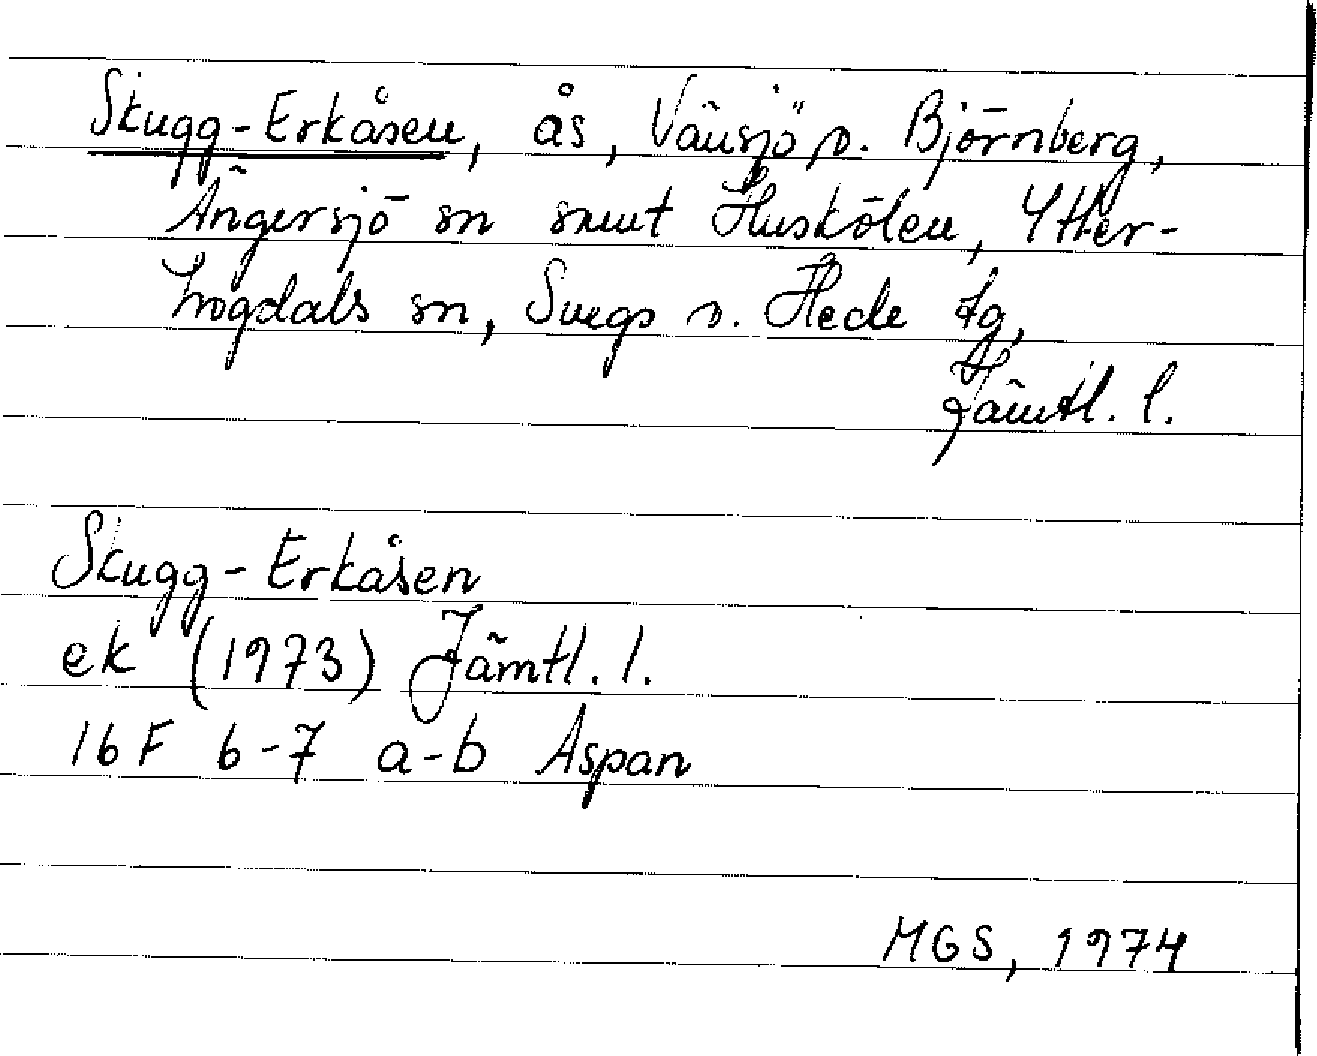 Skugg-Erkåsen, ås, Vänsjö o. Björnberg,
Ängersjö sn samt Huskölen, Ytter-
hogdals sn, Svegs o. Hede tg,
Jämtl. l.
Skugg-Erkåsen
ek (1973) Jämtl. l.
16F 6-7 a-b Aspan
MGS, 1974